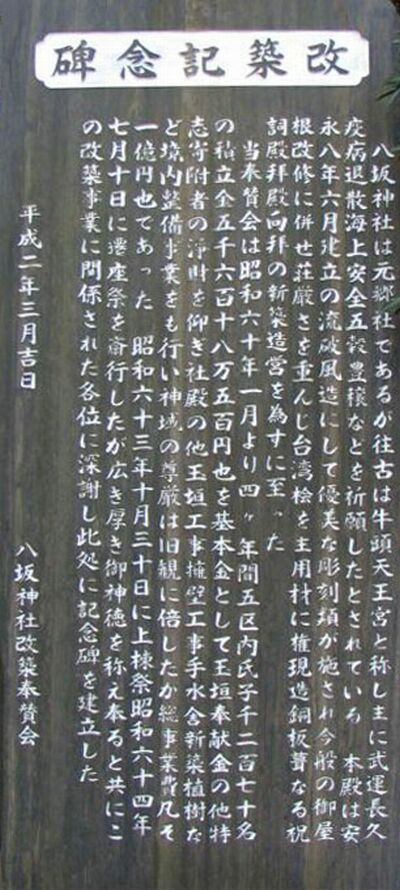 改築記念碑
八坂神社は元郷社であるが往古は牛頭天王宮と称し主に武運長久
疫病退散海上安全五穀豊穣などを祈願したとされている 本殿は安
永八年六月建立の流破風造にして優美な彫刻類が施され今般の御屋
根改修に併せ荘厳さを重んじ台湾桧を主用材に権現造銅板葺なる祝
詞殿拝殿向拝の新築造営を為すに至った
当奉賛会は昭和六十年一月より四ヶ年間五区内氏子千二百七十名
の積立金五千六百十八万五百円也を基本金として玉垣奉献金の他特
志寄附者の浄財を仰ぎ社殿の他玉垣工事擁壁工事手水舎新築植樹な
ど境内整備事業をも行い神域の尊厳は旧観に倍したが総事業費凡そ
一億円也であった 昭和六十三年十月三十日に上棟祭昭和六十四年
七月十日に遷座祭を斎行したが広き厚き御神徳を称え奉ると共にこ
の改築事業に関係された各位に深謝し此処に記念碑を建立した
平成二年三月吉日
八坂神社改築奉賛会